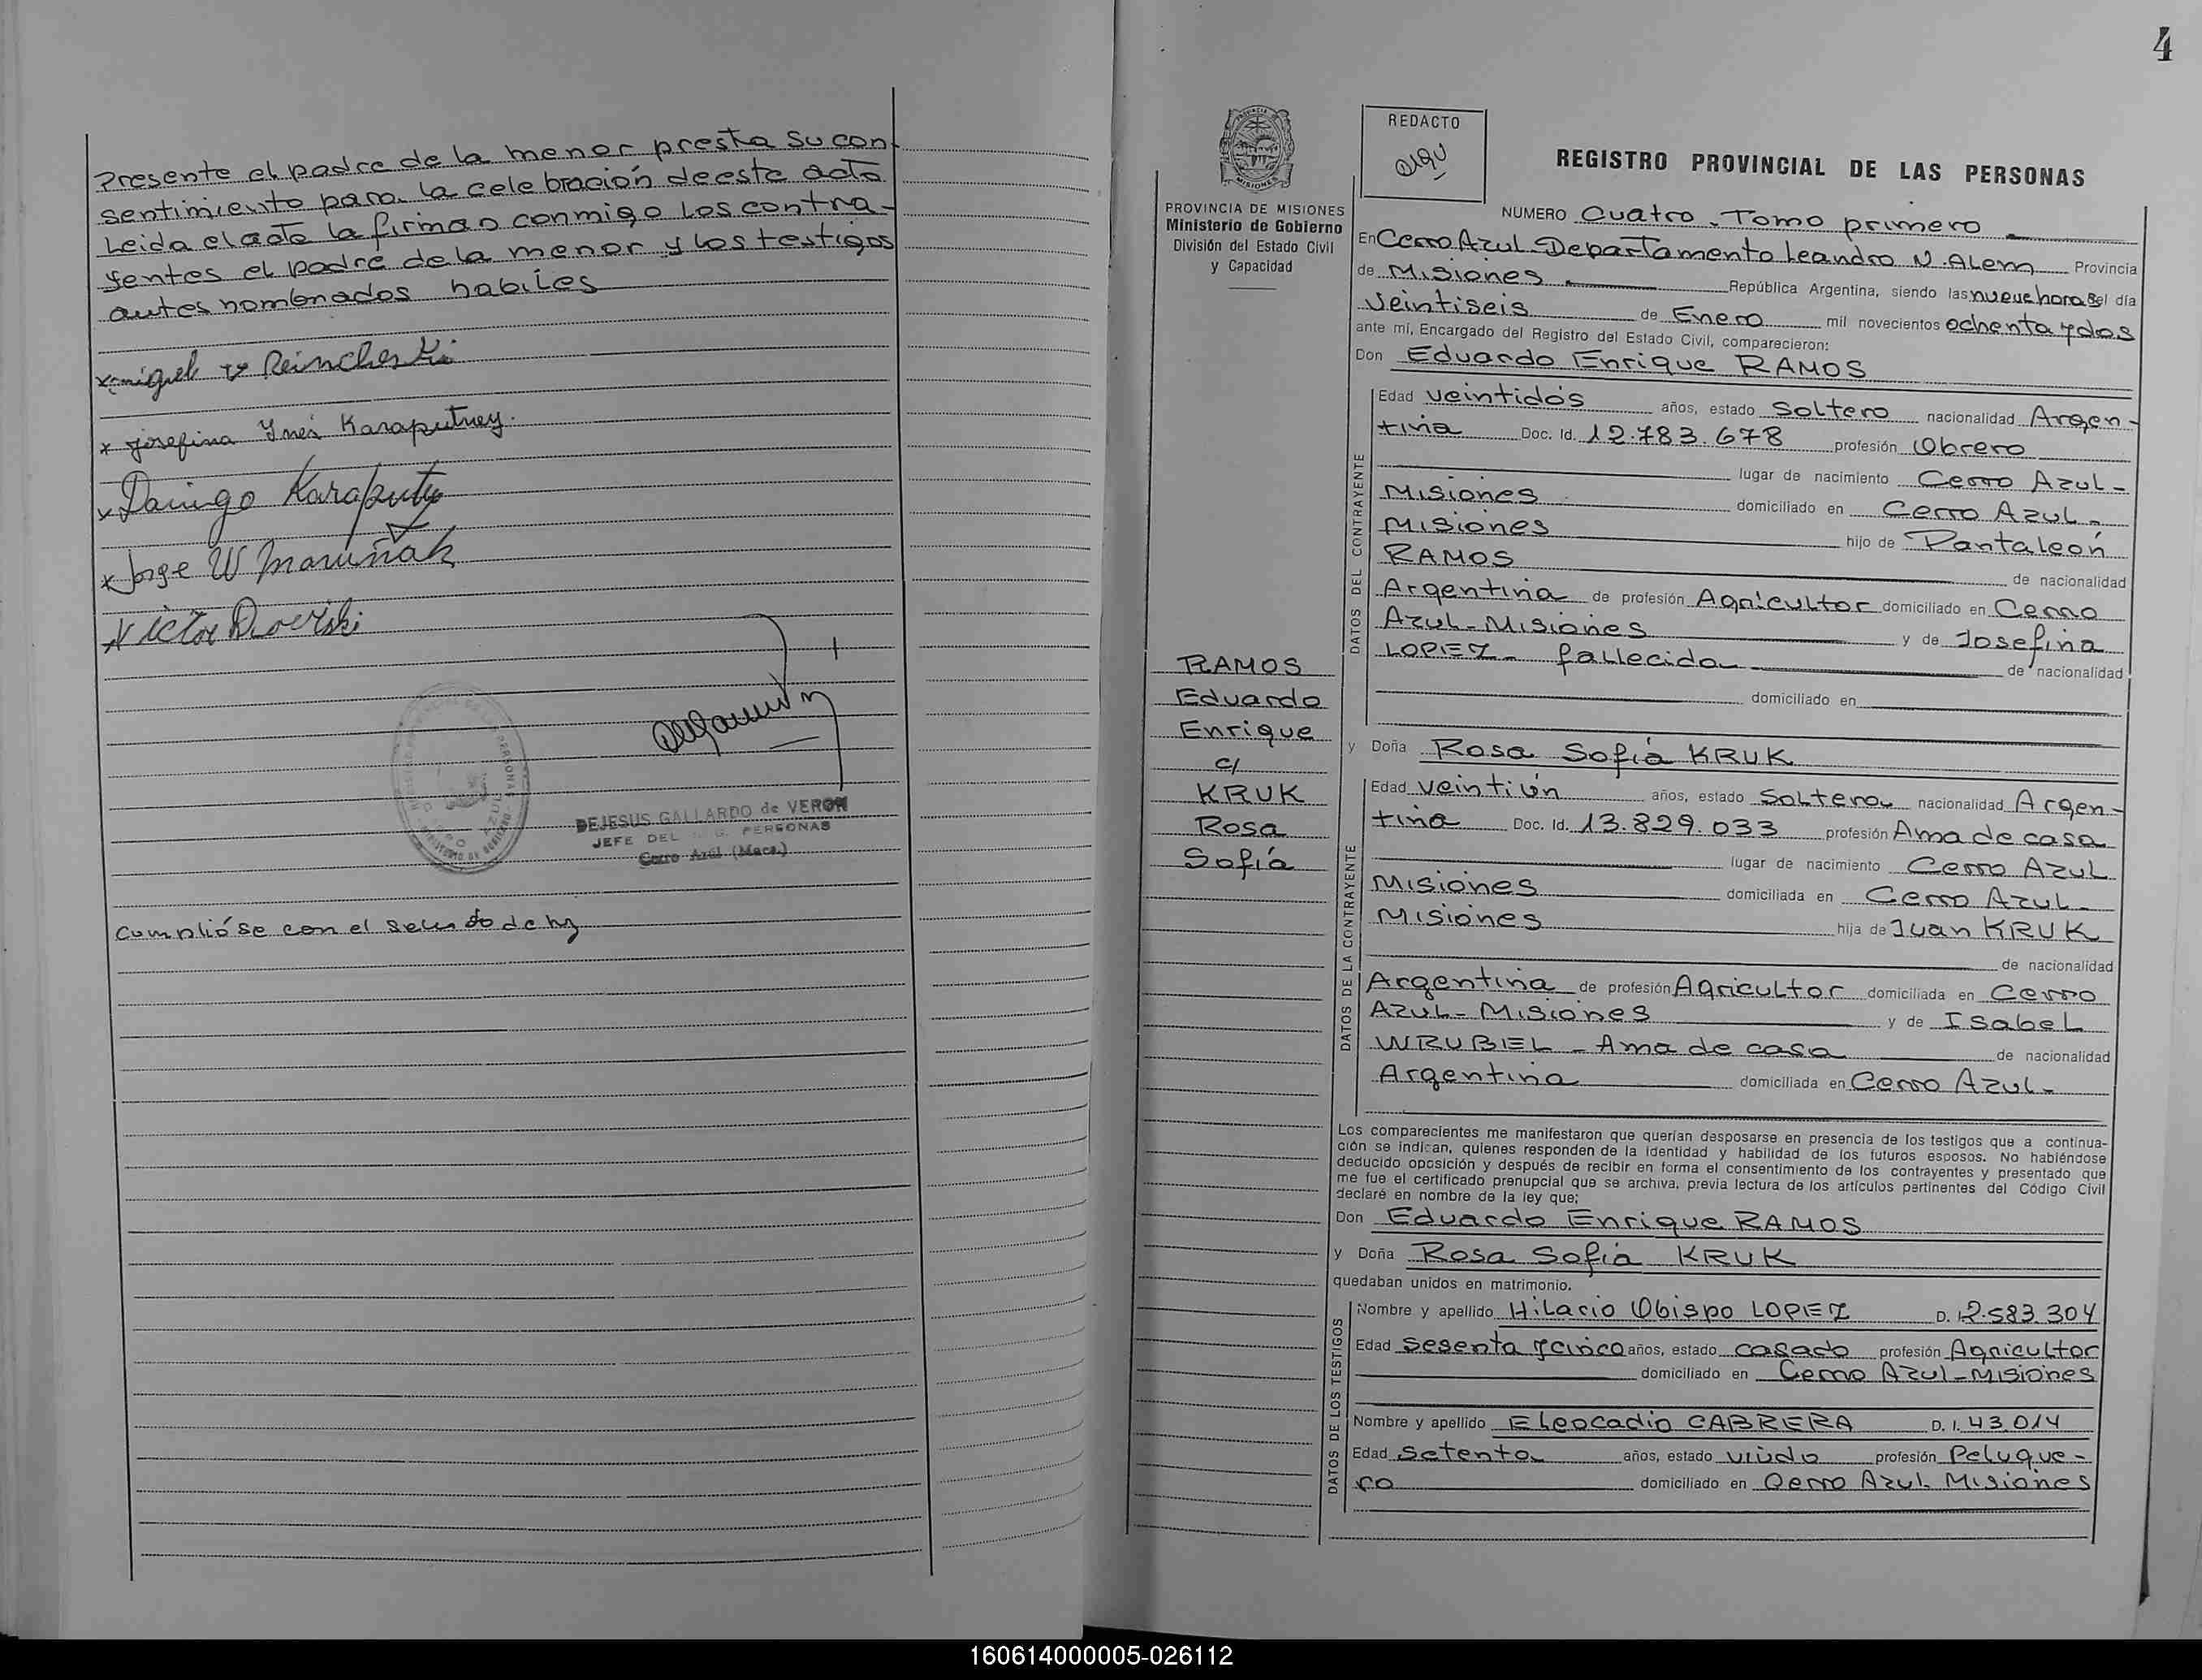 Presente el padre de la menor presta su con
sentimiento para la celebración de este acto
Leida el acta la firman conmigo los contra-
yentes el padre de la menor y los testigos
antes nombrados habiles
x miguel v Reincheski
x Josefina Ines Karaputney.
x Domingo Karaputy
x Jorge W Maruñak
x Victor
DEJESUS GALLARDO de VERON
JEFE DEL R. G. PERSONAS
Cerro Azul (Mnes.)
cumplióse con el de ley
4
PROVINCIA DE MISIONES
Ministerio de Gobierno
División del Estado Civil
y Capacidad
RAMOS
Eduardo
Enrique
c/
KRUK
Rosa
Sofía
REDACTO
REGISTRO PROVINCIAL DE LAS PERSONAS
NUMERO Cuatro. Tomo primero
En Cerro Azul Departamento Leandro N. Alem Provincia
de Misiones República Argentina, siendo las nueve horas del día
Veintiseis de Enero mil novecientos ochenta y dos
ante mí, Encargado del Registro del Estado Civil, comparecieron:
Don Eduardo Enrique RAMOS
DATOS DEL CONTRAYENTE
Edad veintidós años, estado Soltero nacionalidad Argen-
tina Doc. Id. 12.783.678 profesión Obrero
lugar de nacimiento Cerro Azul-
Misiones domiciliado en Cerro Azul-
Misiones hijo de Pantaleón
RAMOS de nacionalidad
Argentina de profesión Agricultor domiciliado en Cerro
Azul-Misiones y de Josefina
LOPEZ- fallecida de nacionalidad
domiciliado en
y Doña Rosa Sofía KRUK
DATOS DE LA CONTRAYENTE
Edad veintiún años, estado Soltera nacionalidad Argen-
tina Doc. Id. 13.829.033 profesión Ama de casa
lugar de nacimiento Cerro Azul
Misiones domiciliada en Cerro Azul-
Misiones hija de Juan KRUK
de nacionalidad
Argentina de profesión Agricultor domiciliada en Cerro
Azul-Misiones y de Isabel
WRUBEL - Ama de casa de nacionalidad
Argentina domiciliada en Cerro Azul-
Los comparecientes me manifestaron que querían desposarse en presencia de los testigos que a continua-
ción se indican, quienes responden de la identidad y habilidad de los futuros esposos. No habiéndose
deducido oposición y después de recibir en forma el consentimiento de los contrayentes y presentado que
me fue el certificado prenupcial que se archiva, previa lectura de los artículos pertinentes del Código Civil
declaré en nombre de la ley que;
Don Eduardo Enrique RAMOS
y Doña Rosa Sofía KRUK
quedaban unidos en matrimonio.
DATOS DE LOS TESTIGOS
Nombre y apellido Hilario Obispo LOPEZ D. I. 2.583.304
Edad Sesenta y cinco años, estado casado profesión Agricultor
domiciliado en Cerro Azul-Misiones
Nombre y apellido Eleocadio CABRERA D. I. 43.014
Edad Setenta años, estado viudo profesión Peluque-
ro domiciliado en Cerro Azul. Misiones
160614000005-026112